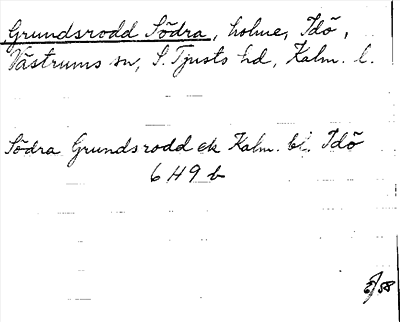 Grundsrodd Södra, holme, Idö,
Västrums sn, S. Tjusts hd, Kalm. l.
Södra Grundsrodd ek Kalm. bl. Idö
6 H9 b
58